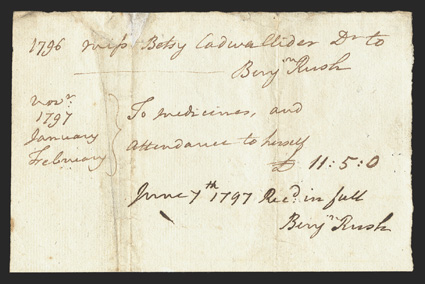 1796 Miss Betsy Cadwallider Dr to
Benjn Rush
Novr.
1797
January
February
To medicines, and
Attendance to herself
£ 11:5:0
June 7th 1797 Recd. in full
Benjn Rush